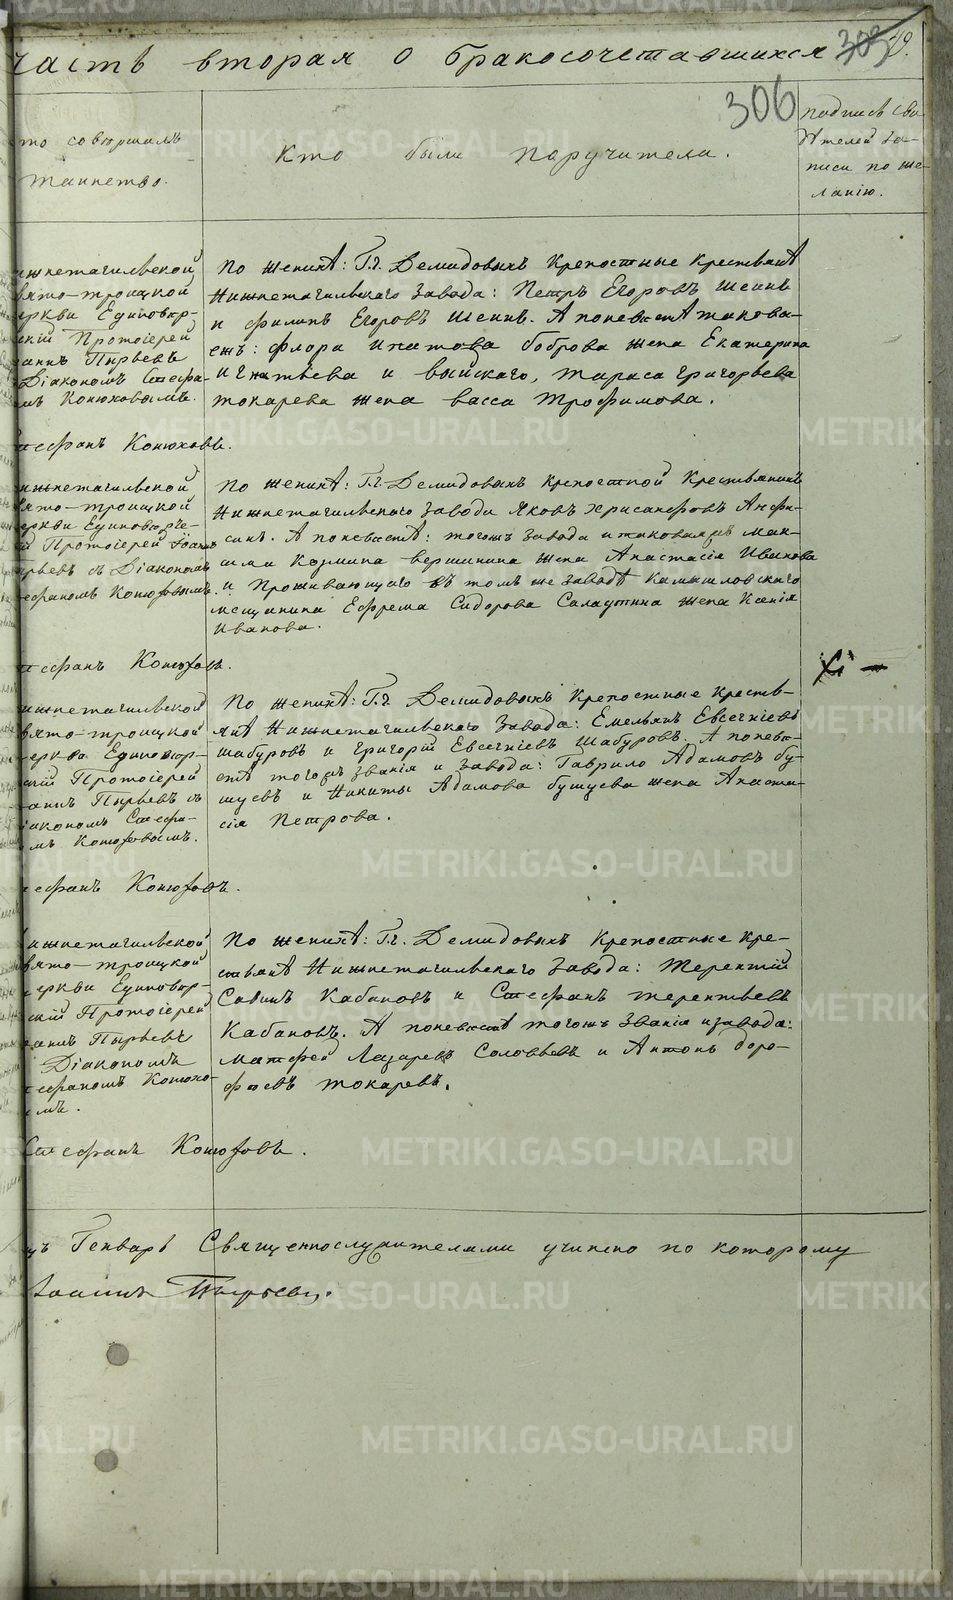 часть вторая о бракосочетавшихся 303 79.
306
то совершилъ
таинство.
Кто были поручители.
подпись сви
дѣтелей за-
писи по же-
ланію.
ижнетагильской
вято-троицкой
еркви Единовѣр-
скій Протоіерей
оаннъ Пырьевъ
Діакономъ Стефа-
мъ Конюховымъ.
тефанъ Конюховъ.
По женихѣ: Г.г. Демидовыхъ крепостные крестьянѣ
Нижнетагильскаго завода: Петръ Егоровъ Шеинъ
и филипъ Егоровъ Шеинъ. А поневѣстѣ такова-
ежъ: флора Ипатова боброва жена Екатерина
Игнатьева и выйскаго, тараса григорьева
токарева жена васса Трофимова.
ижнетагильской
вято-троицкой
еркви Единовѣрче-
й Протоіерей Іоаннъ
ырьевъ съ Діакономъ
тефаномъ Конюховымъ.
тефанъ Конюховъ.
По женихѣ: Г.г. Демидовыхъ крепостной крестьянинъ
Нижнетагильскаго завода Яковъ Хрисанфовъ Анфи-
синъ. А поневѣстѣ: тогожъ завода и таковаяжъ мак-
Козмина вершинина жена Анастасія Иванова
и Проживающаго въ томъ же заводѣ Камышловскаго
мещанина Ефрема Сидорова Салаутина жена Ксенія
Иванова.
ижнетагильской
вято-троицкой
еркви Единовѣр-
скій Протоіерей
оаннъ Пырьевъ съ
іакономъ Стефа-
мъ Конюховымъ.
тефанъ Конюховъ.
По женихѣ: Г.г. Демидовыхъ крепостные кресть-
янѣ Нижнетагильскаго завода: Емельянъ Евсегніевъ
шабуровъ и Григорій Евсегніевъ Шабуровъ. А поневѣ-
стѣ тогожъ званія и завода: Гаврило Адамовъ бу-
шуевъ и Никиты Адамова бушуева жена Анаста-
сія Петрова.
ижнетагильской
вято-троицкой
еркви Единовѣр-
скій Протоіерей
оаннъ Пырьевъ
Діакономъ
тефаномъ Конюхо-
мъ.
Стефанъ Конюховъ.
По женихѣ: Г.г. Демидовыхъ крепостные кре-
стьянѣ Нижнетагильскаго завода: Терентій
Савинъ Кабановъ и Стефанъ терентьевъ
Кабановъ. А поневѣстѣ тогожъ званія и завода:
матфей Лазаревъ Соловьевъ и Антонъ доро-
феевъ токаревъ.
Генварь Священнослужителями учинено по которому
Іоаннъ Пырьевъ.
METRIKI.GASO-URAL.RU